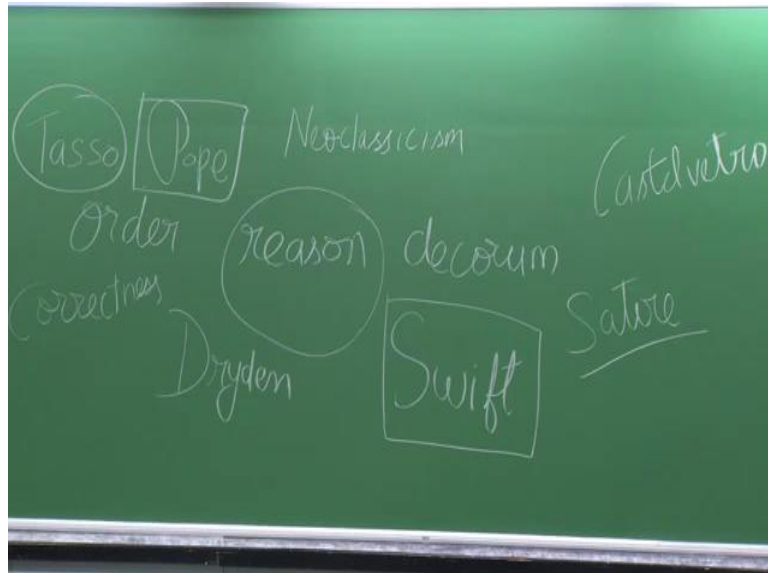 Tasso Pope Neoclassicism
Castelvetro
Order reason decorum
Correctness Satire
Dryden Swift